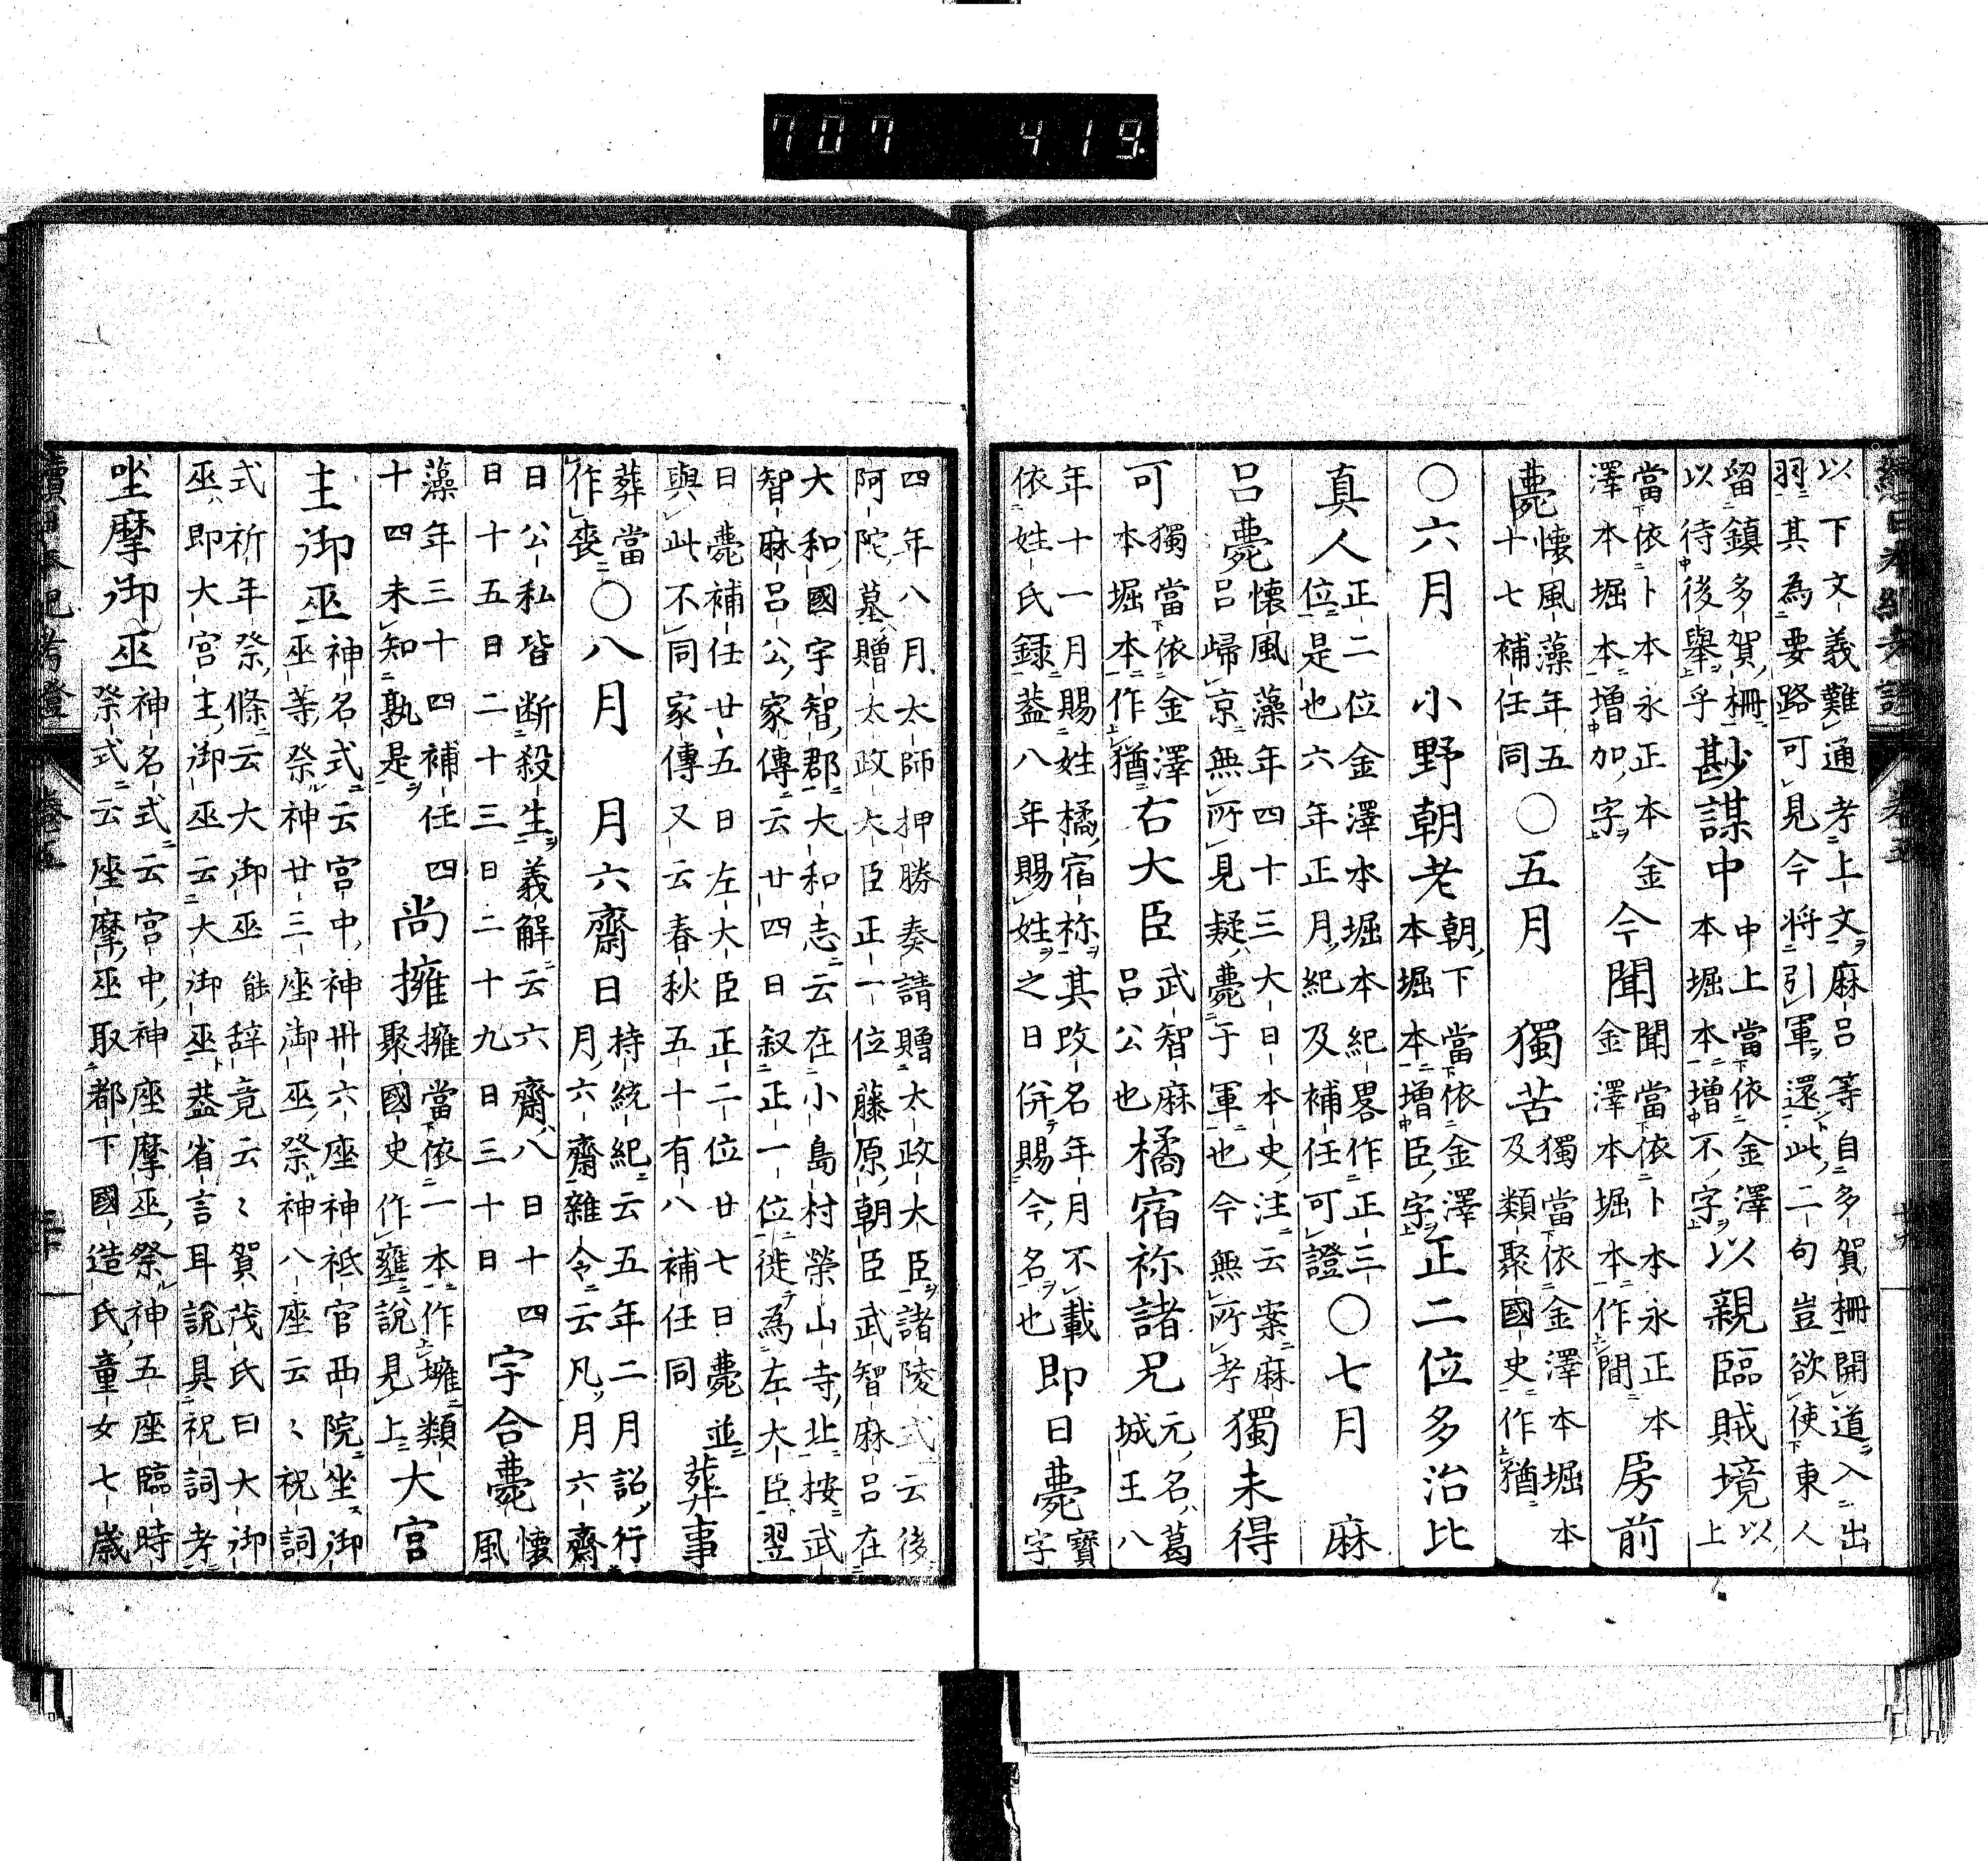 707 419
續日本紀考證 卷五
以下文義難通考上文麻呂等自多賀柵開道入出
羽其為要路可見今将引軍還此二句豈欲使東人
留鎮多賀柵
以待後舉乎尠謀中中上當依金澤
本堀本增不字以親臨賊境以
上
當依卜本永正本金
澤本堀本增加字今聞聞當依卜本永正本
金澤本堀本作間房前
薨懷風藻年五
十七補任同〇五月 獨苦獨當依金澤本堀本
及類聚國史作猶
〇六月 小野朝老朝下當依金澤
本堀本增臣字正二位多治比
真人正二位金澤本堀本紀畧作正三
位是也六年正月紀及補任可證〇七月 麻
呂薨懷風藻年四十三大日本史注云案麻
呂歸京無所見疑薨于軍也今無所考獨未得
可獨當依金澤
本堀本作猶右大臣武智麻
呂公也橘宿祢諸兄元名葛
城王八
年十一月賜姓橘宿祢其改名年月不載
依姓氏録葢八年賜姓之日併賜今名也即日薨寶
字
四年八月太師押勝奏請贈太政大臣諸陵式云後
阿陀墓贈太政大臣正一位藤原朝臣武智麻呂在
大和國宇智郡大和志云在小島村榮山寺北按武
智麻呂公家傳云廿四日叙正一位徙為左大臣翌
日薨補任廿五日左大臣正二位廿七日薨並
與此不同家傳又云春秋五十有八補任同葬事
葬當
作喪〇八月 月六齋日持統紀云五年二月詔行
月六齋雜令云凡月六齋
日公私皆断殺生義解云六齋八日十四
日十五日二十三日二十九日三十日宇合薨懷
風
藻年三十四補任四
十四未知孰是尚擁擁當依一本作壅類
聚國史作壅說見上大宮
主御巫神名式云宮中神卅六座神祗官西院坐御
巫等祭神廿三座御巫祭神八座云〻祝詞
式祈年祭條云大御巫能辞竟云〻賀茂氏曰大御
巫即大宮主御巫云大御巫葢省言耳說具祝詞考
坐摩御巫神名式云宮中神座摩巫祭神五座臨時
祭式云座摩巫取都下國造氏童女七歳
續日本紀考證 卷五